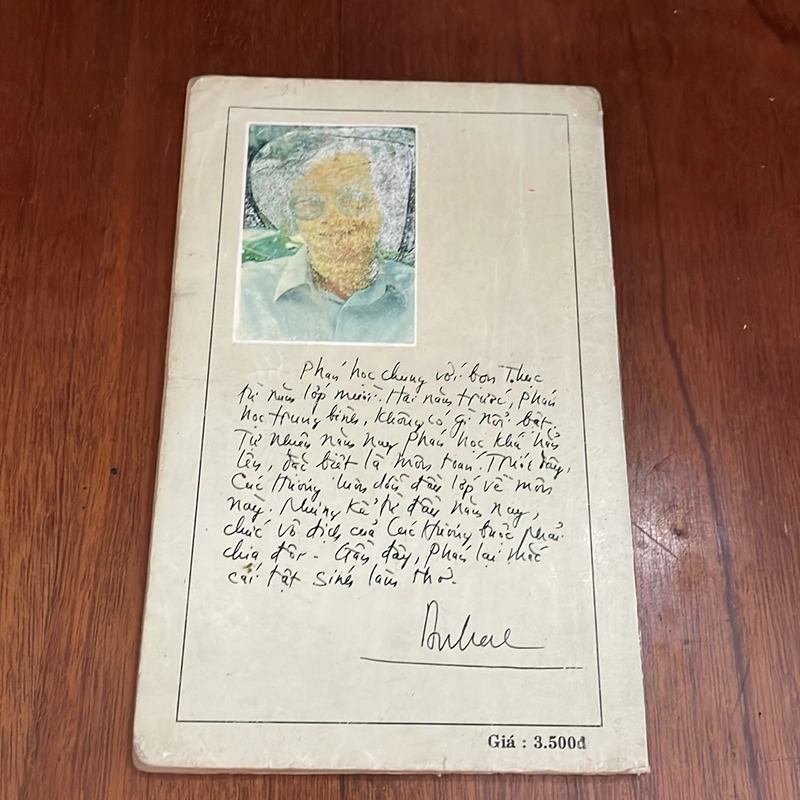 Phán học chung với bọn Thục
từ năm lớp mười. Hai năm trước, Phán
học trung bình, không có gì nổi bật.
Tự nhiên năm nay Phán học khá hẳn
lên, đặc biệt là môn toán. Trước đây,
Cúc Hương luôn dẫn đầu lớp về môn
này. Nhưng kể từ đầu năm nay,
chức vô địch của Cúc Hương buộc phải
chia đôi - Gần đây, Phán lại mắc
cái tật sính làm thơ.
Giá : 3.500đ